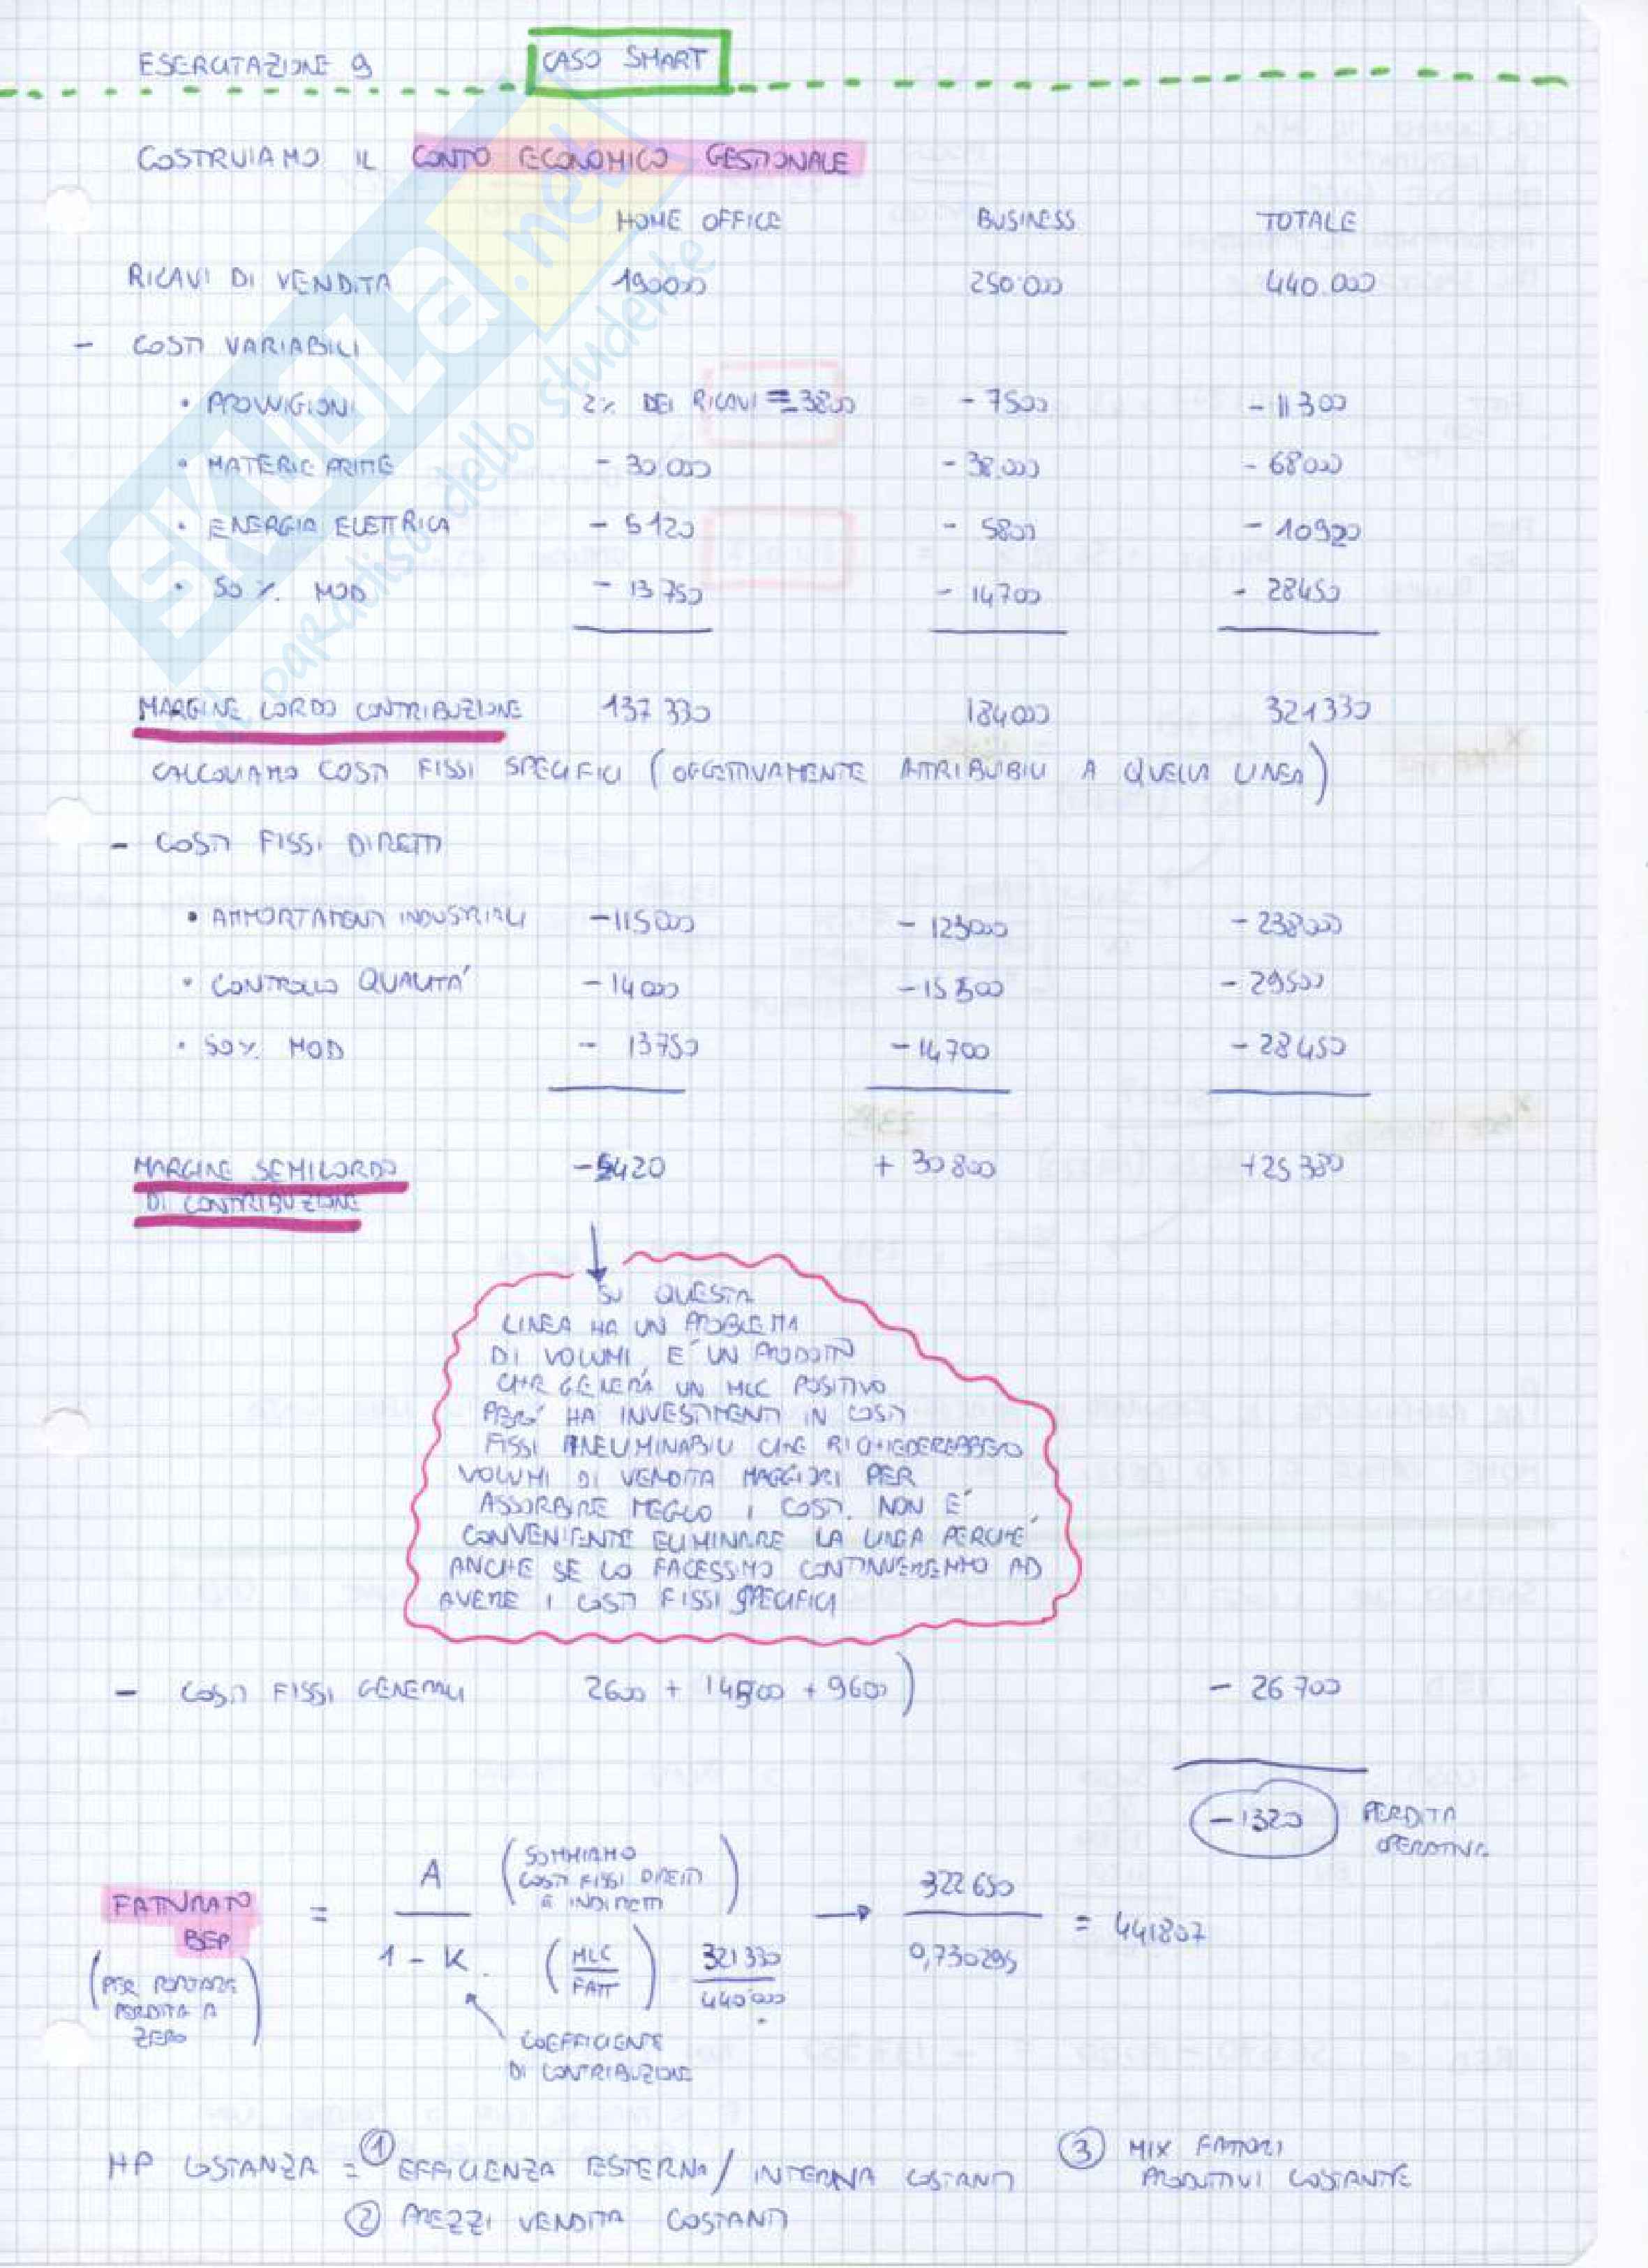 ESERCITAZIONE 9 CASO SMART
COSTRUIAMO IL CONTO ECONOMICO GESTIONALE
HOME OFFICE BUSINESS TOTALE
RICAVI DI VENDITA 190000 250.000 440.000
- COSTI VARIABILI
• PROVVIGIONI 2% DEI RICAVI = -3800 - 7500 - 11300
• MATERIE PRIME - 30.000 - 38.000 - 68000
• ENERGIA ELETTRICA - 5120 - 5800 - 10920
• 50% MOD - 13750 - 14700 - 28450
MARGINE LORDO CONTRIBUZIONE 137 330 184000 321330
CALCOLIAMO COSTI FISSI SPECIFICI (OGGETTIVAMENTE ATTRIBUIBILI A QUELLA LINEA)
- COSTI FISSI DIRETTI
• AMMORTAMENTI INDUSTRIALI -115000 - 123000 - 238000
• CONTROLLO QUALITA' - 14000 - 15500 - 29500
• 50% MOD - 13750 - 14700 - 28450
MARGINE SEMILORDO DI CONTRIBUZIONE -5420 + 30800 +25380
SU QUESTA
LINEA HA UN PROBLEMA
DI VOLUMI, E' UN PRODOTTO
CHE GENERA UN MLC POSITIVO
PERO' HA INVESTIMENTI IN COSTI
FISSI INELIMINABILI CHE RICHIEDEREBBERO
VOLUMI DI VENDITA MAGGIORI PER
ASSORBIRE MEGLIO I COSTI. NON E'
CONVENIENTE ELIMINARE LA LINEA PERCHE'
ANCHE SE LO FACESSIMO CONTINUEREMMO AD
AVERE I COSTI FISSI SPECIFICI
- COSTI FISSI GENERALI 2600 + 14500 + 9600) - 26 700
-1320 PERDITA OPERATIVA
FATTURATO BEP = A (SOMMIAMO COSTI FISSI DIRETTI E INDIRETTI) → 322650 = 441807
(PER PORTARE PERDITA A ZERO) 1 - K (MLC / FATT) 321330 / 440.000 0,730295
COEFFICIENTE
DI CONTRIBUZIONE
HP COSTANZA = ① EFFICIENZA ESTERNA / INTERNA COSTANTI ③ MIX FATTORI PRODUTTIVI COSTANTE
② PREZZI VENDITA COSTANTI
SKUOLA.net
il paradiso dello studente